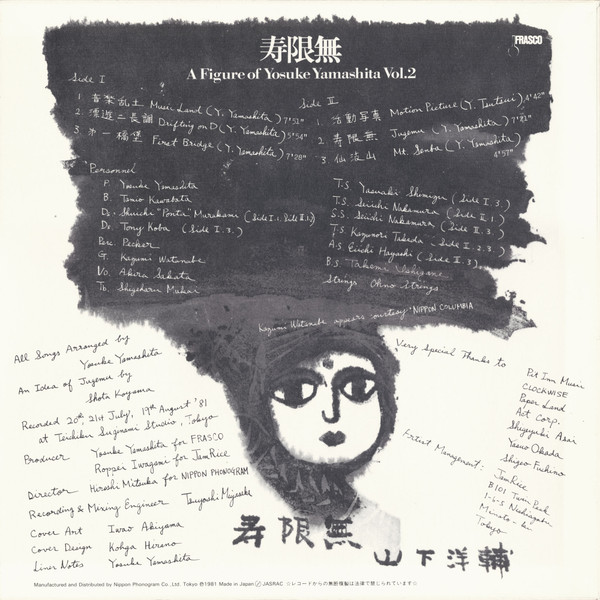 寿限無
FRASCO
A Figure of Yosuke Yamashita Vol.2
Side I
1. 音楽乱土 Music Land (Y. Yamashita) 7'52"
2. 漂遊ニ長調 Drifting on D (Y. Yamashita) 5'54"
3. 第一橋堡 First Bridge (Y. Yamashita) 7'28"
Side II
1. 活動写真 Motion Picture (Y. Tsutsui) 4'42"
2. 寿限無 Jugemu (Y. Yamashita) 7'21"
3. 仙波山 Mt. Senba (Y. Yamashita) 4'57"
Personnel
P. Yosuke Yamashita
B. Tamio Kawabata
Ds. Shuichi "Ponta" Murakami (Side I.1. Side II.1.2)
Ds. Tony Koba (Side I.3.)
Perc. Pecker
G. Kazumi Watanabe
Vo. Akira Sakata
Tb. Shigeharu Mukai
T.S. Yasuaki Shimizu (Side I.3.)
T.S. Seiichi Nakamura (Side II.1.)
S.S. Seiichi Nakamura (Side II.3.)
T.S. Kazunori Takeda - Side II.2.3)
A.S. Eiichi Hayashi (Side II.3.)
B.S. Takemi
Strings Ohno Strings
Kazumi Watanabe appears courtesy NIPPON COLUMBIA
All Songs Arranged by
Yosuke Yamashita
An Idea of Jugemu by
Shota Koyama
Recorded 20th, 21st July, 19th August '81
at Teichiku Suginami Studio, Tokyo
Producer Yosuke Yamashita for FRASCO
Roppei Iwagami for JamRice
Director Hiroshi Mitsuka for NIPPON PHONOGRAM
Recording & Mixing Engineer Tsuyoshi Miyasaka
Cover Art Iwao Akiyama
Cover Design Kohga Hirano
Liner Notes Yosuke Yamashita
Very Special Thanks to
Pit Inn Music
CLOCKWISE
Paper Land
Act Corp.
Shigeyuki Asai
Yasuo Okada
Shigeo Fuchino
Artist Management:
JamRice
B101 Twin Park
1-6-5 Nishiazabu
Minato-ku
Tokyo
寿限無
山下洋輔
Manufactured and Distributed by Nippon Phonogram Co., Ltd. Tokyo ℗1981 Made in Japan JASRAC ☆レコードからの無断複製は法律で禁じられています☆